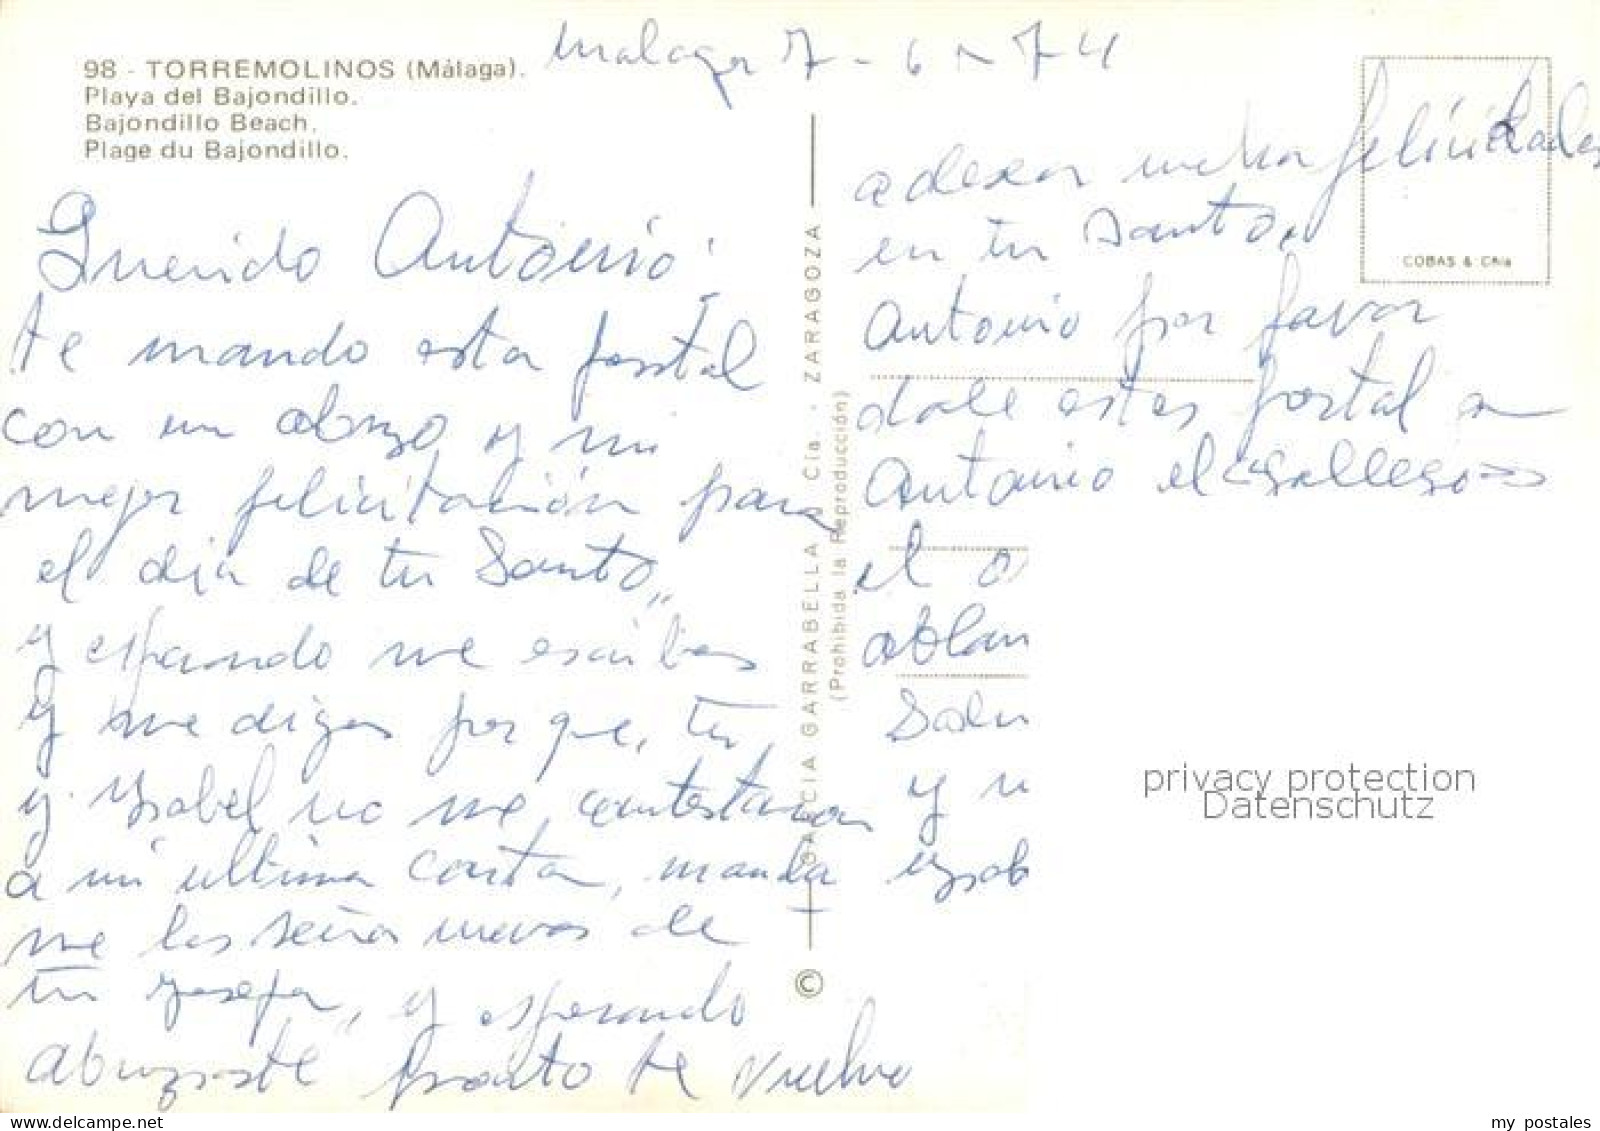 98 - TORREMOLINOS (Málaga).
Playa del Bajondillo.
Bajondillo Beach.
Plage du Bajondillo.
Malaga 7 - 6 - 74
Querido Antonio:
te mando esta postal
con un abrazo y mi
mejor felicitación para
el dia de tu Santo,,
y esperando me escribas
y me digas por que, tu
y Ysabel no me contestaron
a mi ultima carta, manda
me las seña nuevas de
tu, y esperando
abrazaste pronto te vuelve
a desear mucha felicidades
en tu Santo.
Antonio por favor
dale estas postal a
Antonio el "Gallego"
el
ablan
Salu
y
Ysab
GARCIA GARRABELLA Y Cía. - ZARAGOZA
(Prohibida la Reproducción)
©
COBAS & Cñia
privacy protection
Datenschutz
my postales